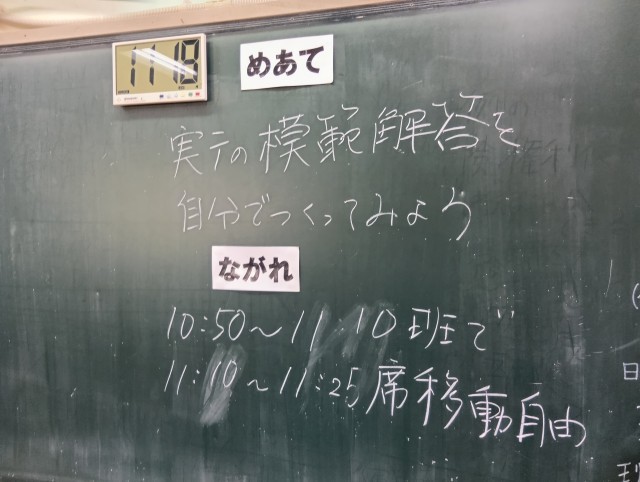 11:18
めあて
実テの模範解答を
自分でつくってみよう
ながれ
10:50～11:10 班で
11:10～11:25 席移動自由
日